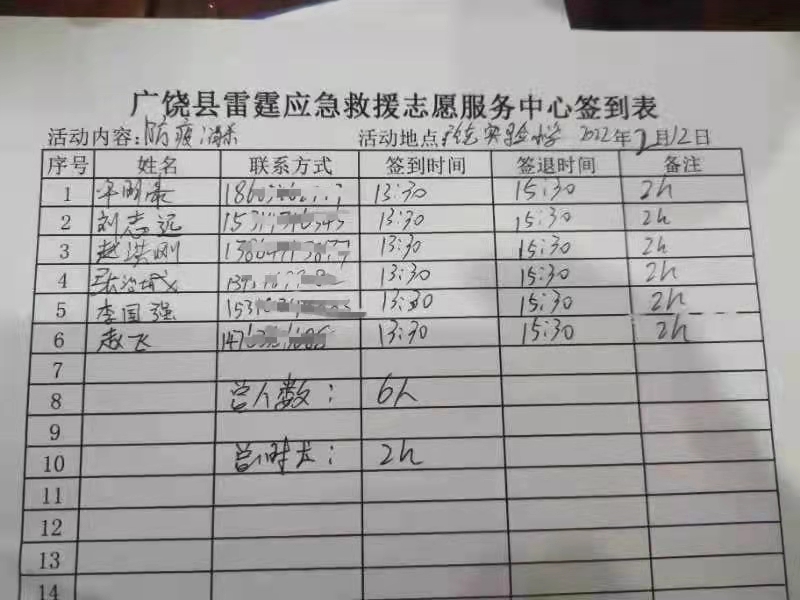 广饶县雷霆应急救援志愿服务中心签到表
活动内容：防疫消杀 活动地点 实验小学 2022年2月12日
序号 姓名 联系方式 签到时间 签退时间 备注
1 13:30 15:30 2h
2 刘志远 13:30 15:30 2h
3 赵洪刚 13:30 15:30 2h
4 13:30 15:30 2h
5 李国强 13:30 15:30 2h
6 赵飞 13:30 15:30 2h
7
8 总人数： 6人
9
10 总时长： 2h
11
12
13
14